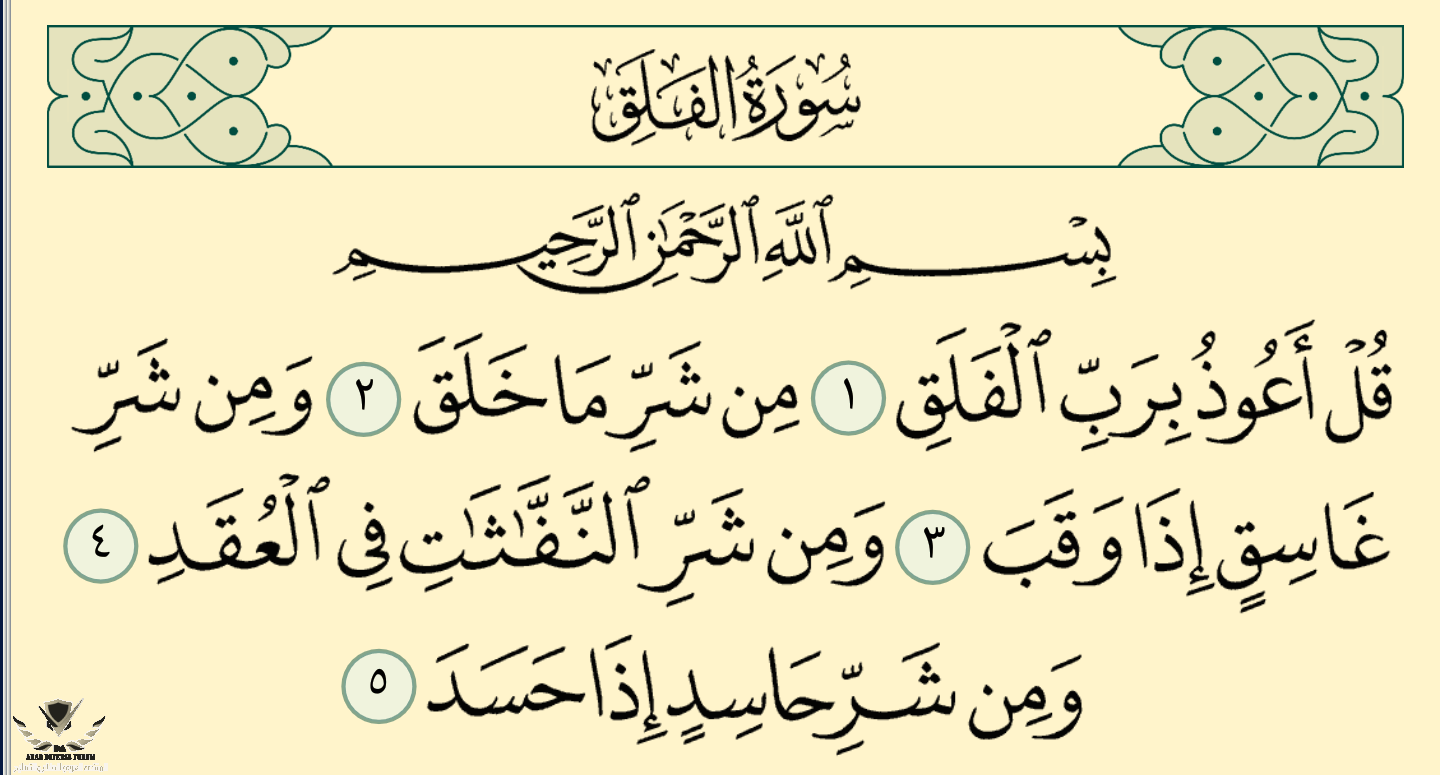 سُورَةُ الفَلَقِ
بِسۡمِ ٱللَّهِ ٱلرَّحۡمَٰنِ ٱلرَّحِيمِ
قُلۡ أَعُوذُ بِرَبِّ ٱلۡفَلَقِ ١ مِن شَرِّ مَا خَلَقَ ٢ وَمِن شَرِّ
غَاسِقٍ إِذَا وَقَبَ ٣ وَمِن شَرِّ ٱلنَّفَّٰثَٰتِ فِي ٱلۡعُقَدِ ٤
وَمِن شَرِّ حَاسِدٍ إِذَا حَسَدَ ٥
ARAB DEFENSE FORUM